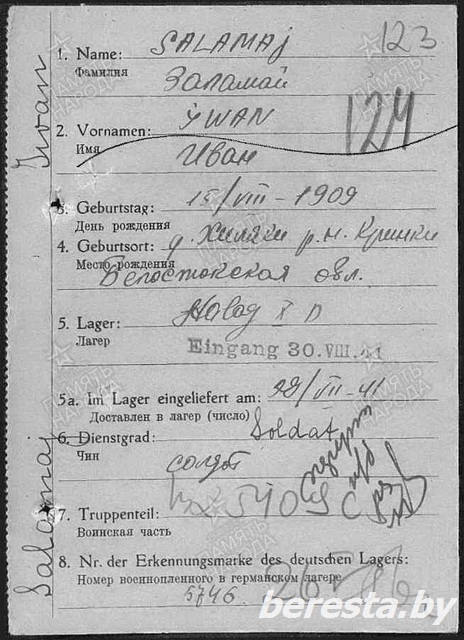 123
1. Name: SALAMAJ
Фамилия Заламай
124
2. Vornamen: IWAN
Имя Иван
3. Geburtstag: 15/VIII-1909
День рождения
4. Geburtsort: д. Хиляки р.н. Кринки
Место рождения Белостокская обл.
5. Lager: Stalag X D
Лагерь
Eingang 30. VIII. 41
5a. Im Lager eingeliefert am: -41
Доставлен в лагерь (число)
6. Dienstgrad: Soldat
Чин солдат
7. Truppenteil:
Воинская часть
8. Nr. der Erkennungsmarke des deutschen Lagers:
Номер военнопленного в германском лагере
5746
Iwan
Salamaj
ПАМЯТЬ НАРОДА
beresta.by